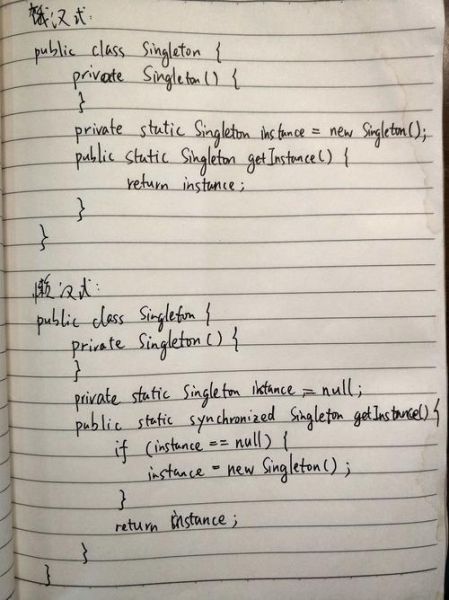 饿汉式:
public class Singleton {
private Singleton() {
}
private static Singleton instance = new Singleton();
public static Singleton getInstance() {
return instance;
}
}
懒汉式:
public class Singleton {
private Singleton() {
}
private static Singleton instance = null;
public static synchronized Singleton getInstance() {
if (instance == null) {
instance = new Singleton();
}
return instance;
}
}